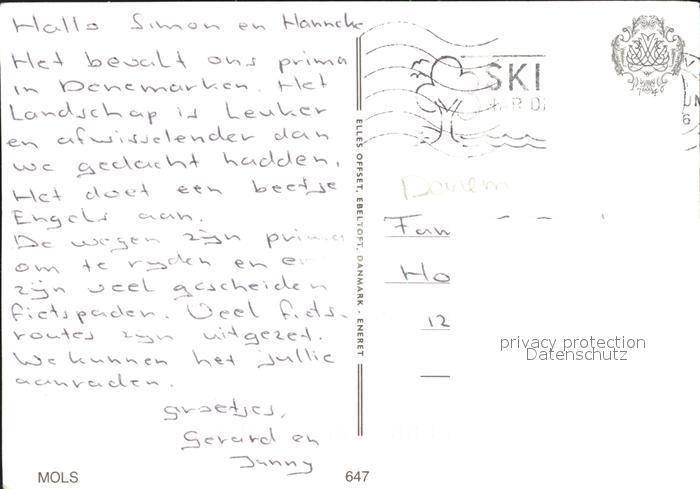 Hallo Simon en Hanneke
Het bevalt ons prima
in Denemarken. Het
Landschap is leuker
en afwisselender dan
we gedacht hadden.
Het doet een beetje
Engels aan.
De wegen zijn prima
om te ryden en er
zijn veel gescheiden
fietspaden. Veel fiets-
routes zijn uitgezet.
We kunnen het jullie
aanraden.
groetjes,
Gerard en
Janny
MOLS
647
ELLES OFFSET, EBELTOFT, DANMARK · ENERET
SKI
Danem
Fam
Ho
12
privacy protection
Datenschutz